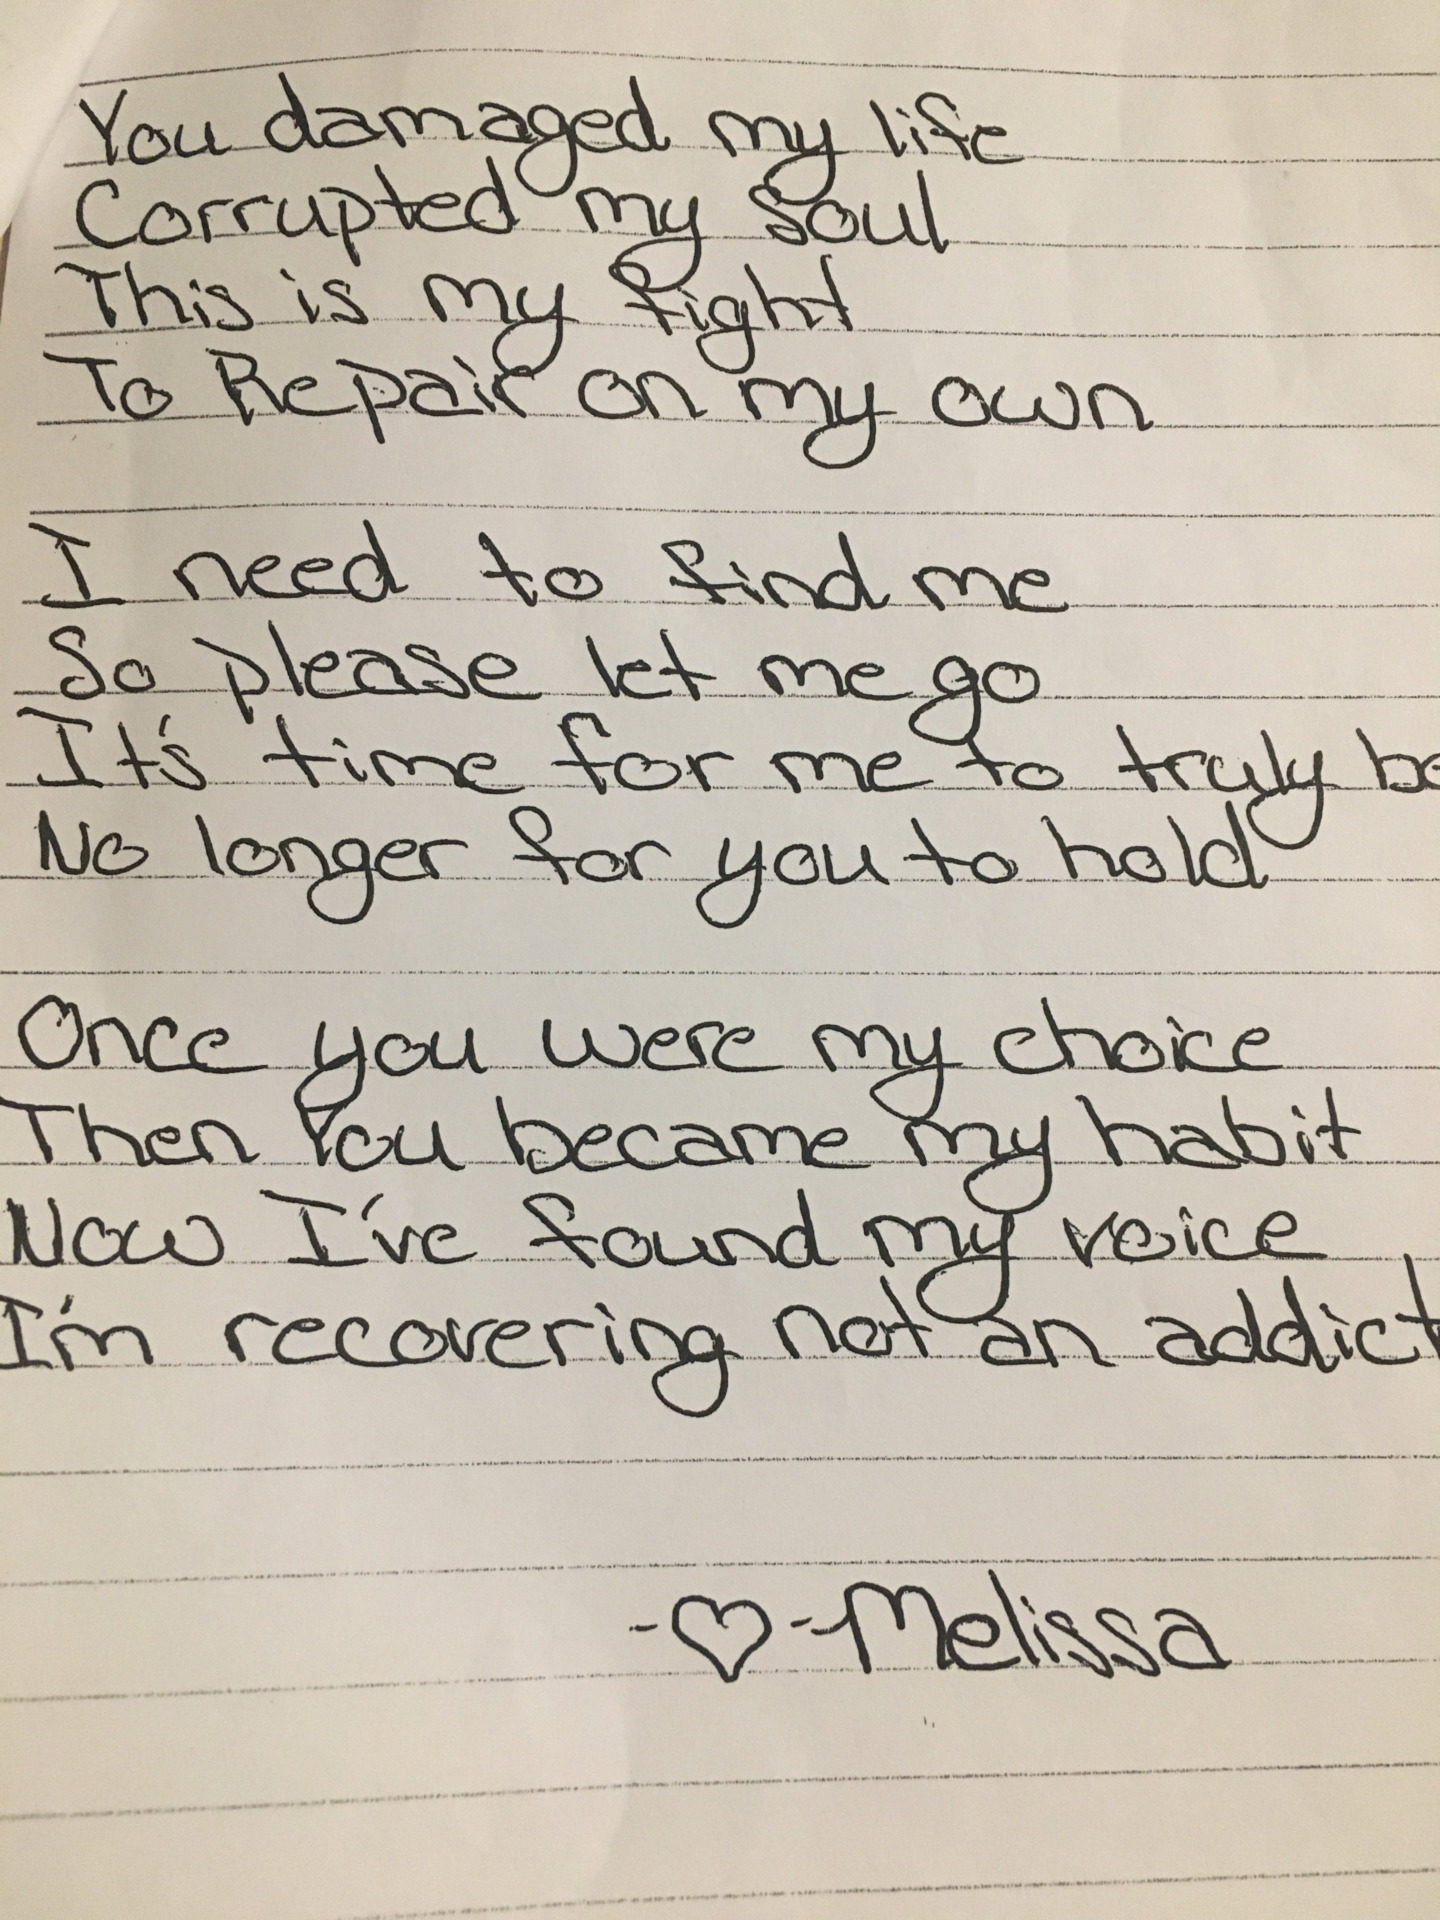 You damaged my life
Corrupted my soul
This is my fight
To Repair on my own
I need to find me
So please let me go
It's time for me to truly be
No longer for you to hold
Once you were my choice
Then You became my habit
Now I've found my voice
I'm recovering not an addict
-♡-Melissa